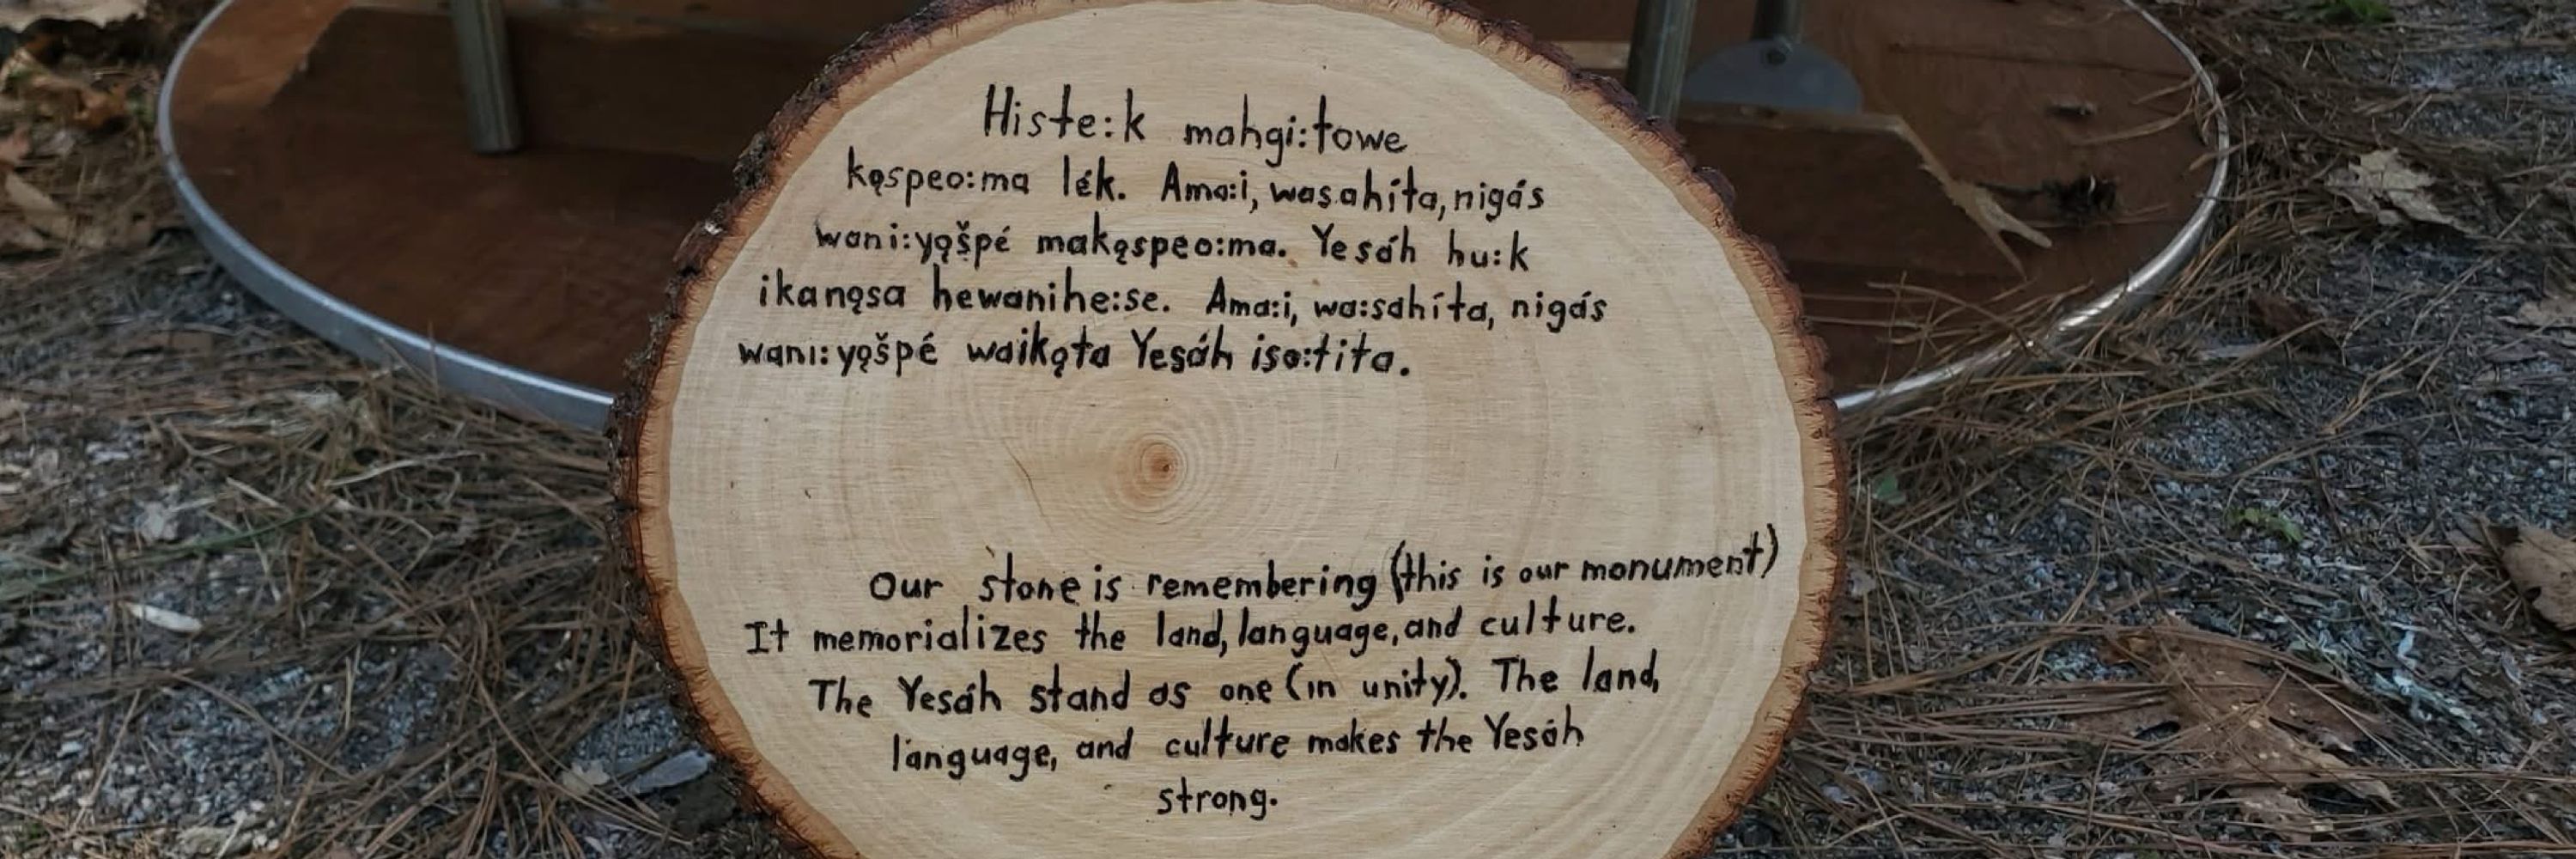 Histe:k mahgi:towe
kąspeo:ma lék. Ama:i, wasahíta, nigás
wani:yąšpé makąspeo:ma. Yesáh hu:k
ikanąsa hewanihe:se. Ama:i, wa:sahíta, nigás
wani:yąšpé waikąta Yesáh iso:tita.
Our stone is remembering (this is our monument)
It memorializes the land, language, and culture.
The Yesáh stand as one (in unity). The land,
language, and culture makes the Yesáh
strong.